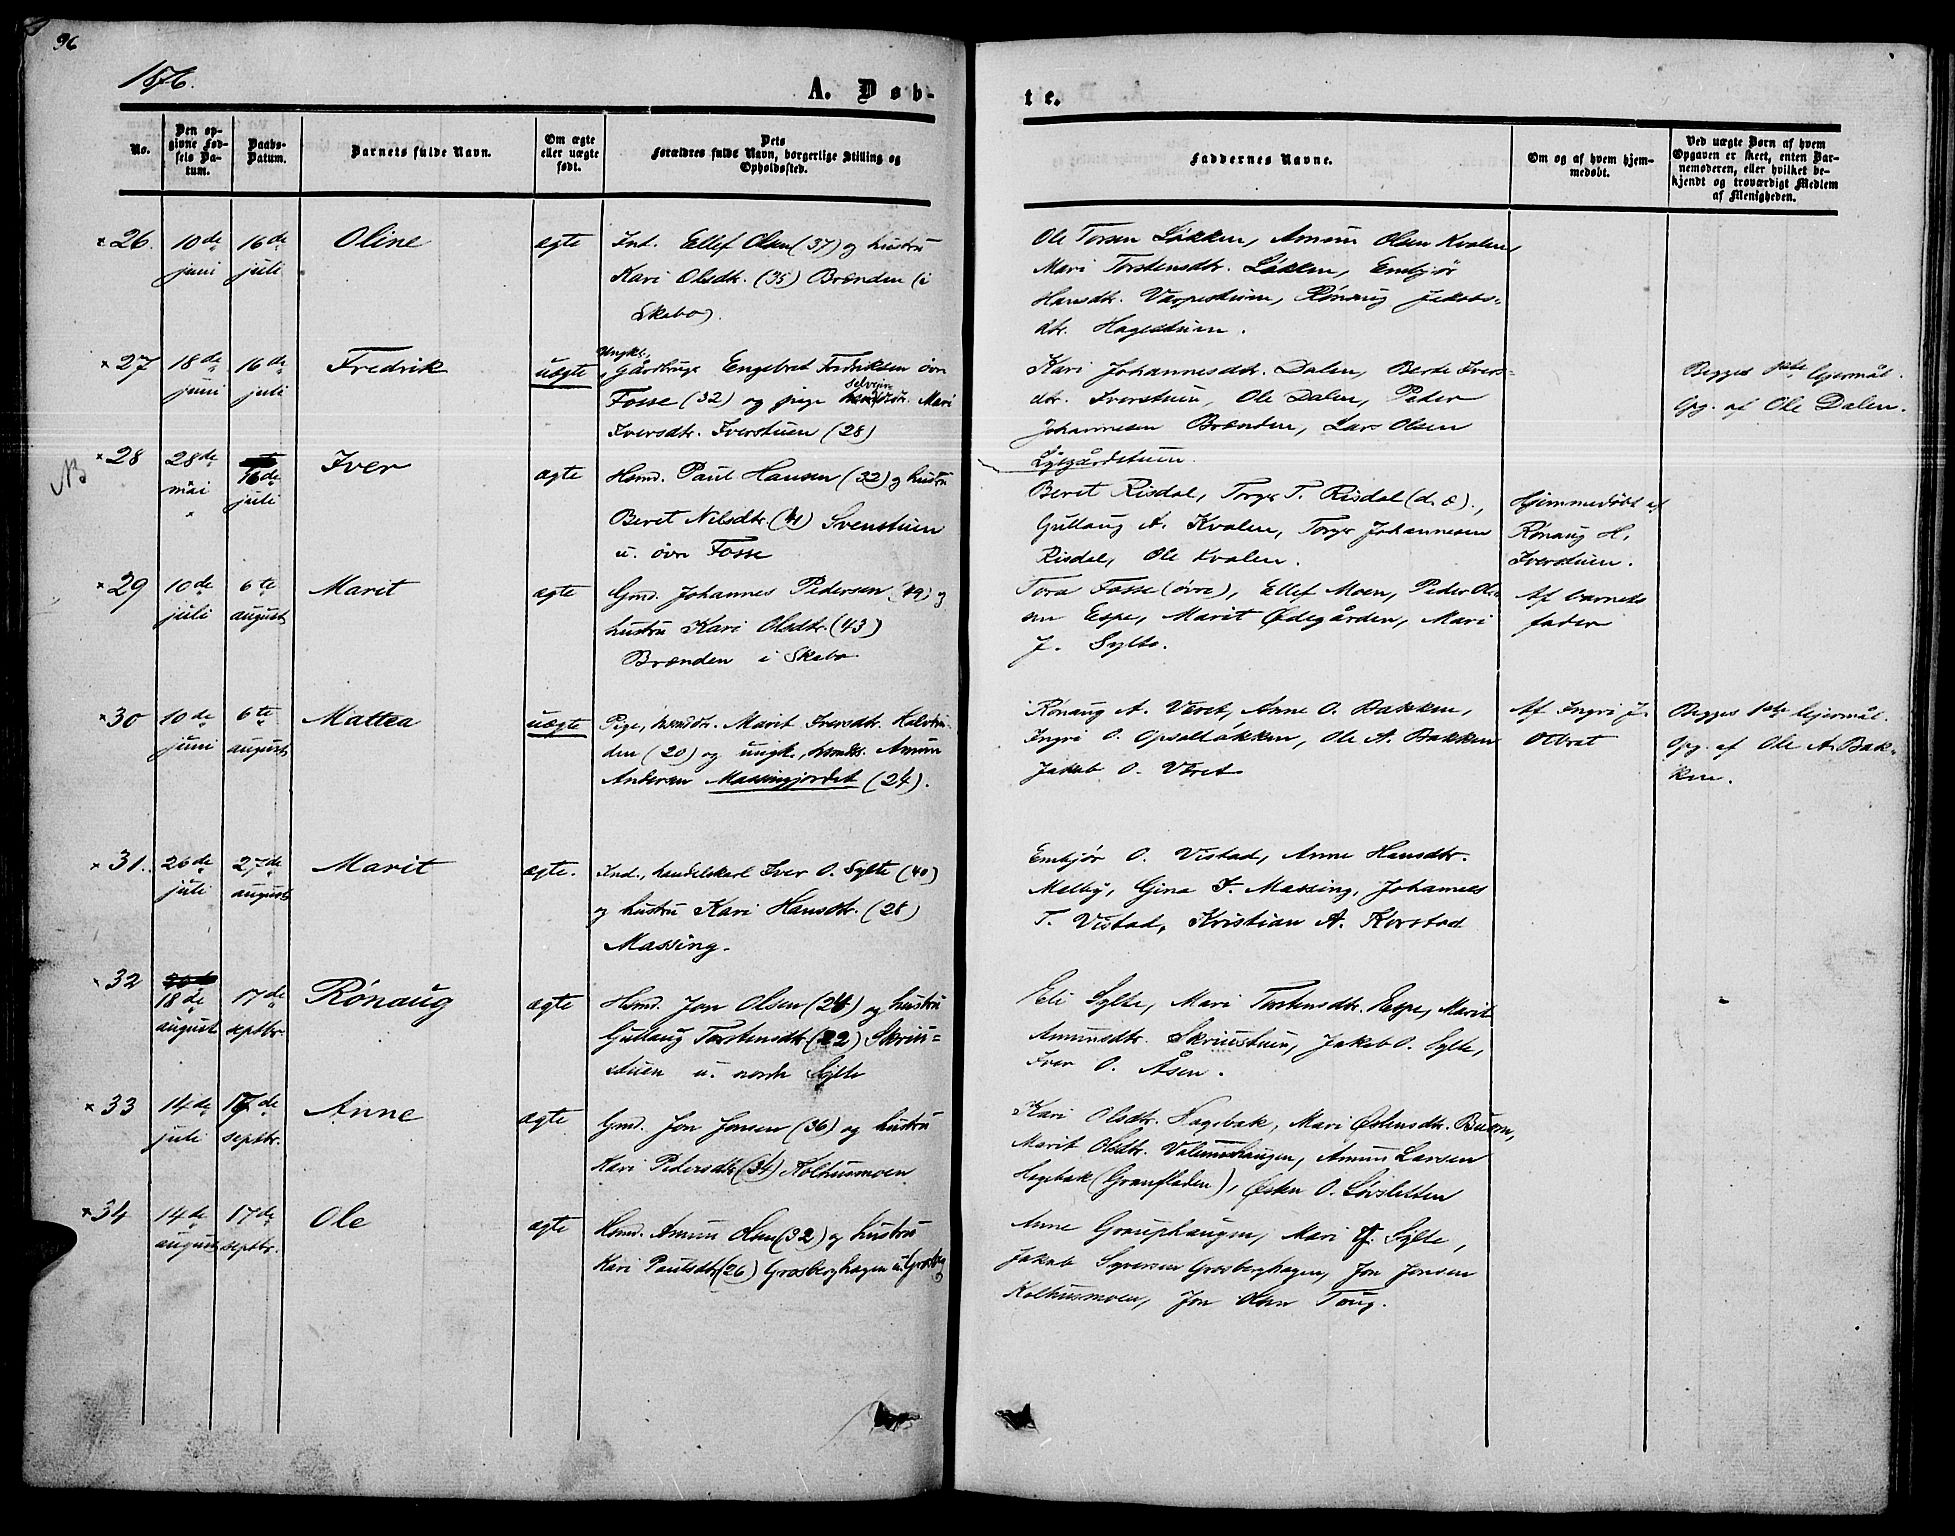 96
1876.
A. Døb-
te.
No.
Den op-
givne Fød-
sels Da-
tum.
Daabs-
Datum.
Barnets fulde Navn.
Om ægte
eller uægte
født.
Dets
Forældres fulde Navn, borgerlige Stilling og
Opholdssted.
Faddernes Navne.
Om og af hvem hjem-
medøbt.
Ved uægte Børn af hvem
Opgaven er skeet, enten Bar-
nemoderen, eller hvilket be-
kjendt og troværdigt Medlem
af Menigheden.
× 26. 10de juni
16de juli
Oline
ægte
Ind. Ellef Olsen (37) og hustru
Kari Olsdtr. (35) Brænden (i
Skabo).
Ole Torsen Løkken, Amun Olsen Kvalen,
Mari Torstensdtr. Løkken, Embjør
Hansdtr. Varpestuen, Rønaug Jakobs-
dtr. Hagestuen.
× 27 18de juni
16de juli
Fredrik
uægte
Ungk.
Gårdbruger Engebret Fredriksen øvr
Fosse (32) og pige selvejer Mari
Iversdtr. Iverstuen (28)
Kari Johannesdtr. Dalen, Berte Ivers-
dtr. Iverstuen, Ole Dalen, Peder
Johannesen Brænden, Lars Olsen
Lysgårdstuen.
Begges 1ste lejermål.
Opg. af Ole Dalen.
NB
× 28 28de mai
16de juli
Iver
ægte
Hsmd. Paul Hansen (32) og hustru
Beret Nilsdtr. (41) Svenstuen
u. øvre Fosse
Beret Risdal, Torger T. Risdal (d. æ).,
Gullaug A. Kvalen, Torger Johannesen
Risdal, Ole Kvalen.
Hjemmedøbt af
Rønaug H.
Iverstuen.
× 29 10de juli
6te august
Marit
ægte
Gmd. Johannes Pedersen (49) og
hustru Kari Olsdtr. (43)
Brænden i Skabo
Tora Fosse (øvre), Ellef Moen, Peder Ol-
sen Espe, Marit Ødegården, Mari
J. Sylte.
Af barnets
fader
× 30 10de juni
6te august
Mattea
uægte
Pige, hsmdtr. Marit Iversdtr. Halvstu-
den (20) og ungk., hsmds. Amun
Andersen Massingjordet (24).
Rønaug A. Været, Anne O. Bakken,
Ingri O. Opsalløkken, Ole A. Bakken
Jakob O. Været
Af Ingri J.
Olbrat
Begges 1ste lejermål.
Opg. af Ole A. Bak-
ken.
× 31. 26de juli
27de august
Marit
ægte.
Ind., handelskarl Iver O. Sylte (40)
og hustru Kari Hansdtr. (28)
Massing.
Embjør O. Vistad, Anne Hansdtr.
Melby, Gina I. Massing, Johannes
T. Vistad, Kristian A. Korstad
32
18de august
17de septbr.
Rønaug
ægte
Hsmd. Jon Olsen (24) og hustru
Gullaug Torstensdtr. (22) Skriu-
stuen u. nordre Sylte
Eli Sylte, Mari Torstensdtr. Espe, Marit
Amunsdtr. Skriustuen, Jakob O. Sylte,
Iver O. Åsen.
× 33 14de juli
17de septbr.
Anne
ægte
Gmd. Jon Jonsen (36) og hustru
Kari Pedersdtr. (34) Kolhusmoen
Kari Olsdtr. Hagebak, Mari Østensdtr. Buaen,
Marit Olsdtr. Valumshaugen, Amun Larsen
Hagebak (Granfladen), Østen O. Løvsletten
× 34 14de august
17de septbr.
Ole
ægte
Hsmd. Amun Olsen (32) og hustru
Kari Paulsdtr. (26) Grosberghagen u. Grosberg
Anne Grauphaugen, Mari J. Sylte,
Jakob Syversen Grosberghagen, Jon Jonsen
Kolhusmoen, Jon Olsen Toug.